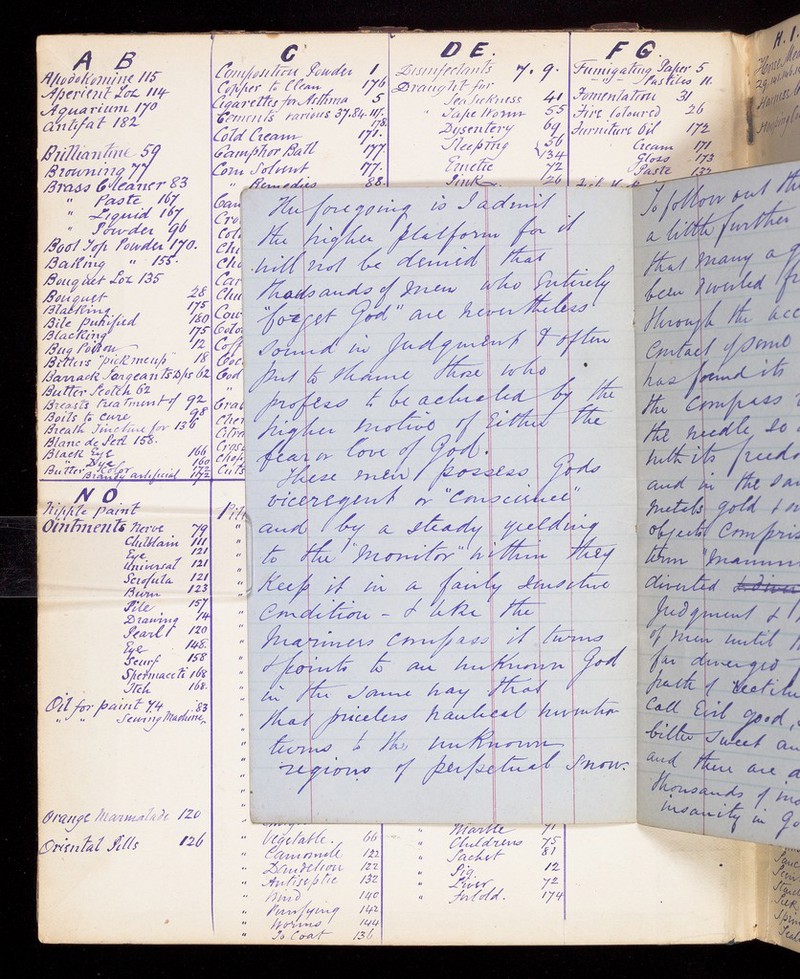 A B
Apodokomine 115
Aperient Loz 114
Aquarium 170
Antifat 182
Brilliantine 59
Browning 77
Brass Cleaner 83
" Paste 167
" Liquid 167
" Powder 96
Boot Top Powder 170.
Baking " 155.
Bouquet Loz 135
Bouquet 28
Blacking 175
Bile purified 180
Blacking 175
Bug Poison 12
Bitters "pick me up" 18
Barrack Sargeants Dps 62
Butter Scotch 62
Breasts treatment of 92
Boils to cure 98
Breath Tincture for 136
Blanc de Perl 158.
Black Eye 166
" Dye 160
Butter Color 172
Brandy artificial 172
C
Composition Powder 1
Copper to Clean 176
Cigarettes for Asthma 5
Cements various 37.84.111.
178.
Cold Cream 171.
Camphor Ball 177
Corn Solvent 177.
" Remedies 88
D E.
Disinfectants 7. 9.
Draught for
" Sea Sickness 41
" Tape Worm 55
Dysentery 69
Sleeping 56
134
Emetic 72
Pink 126
F G
Fumigating Paper 5
" Pastiles 11.
Fomentation 31
Fire Coloured 26
Furniture Oil 172
Cream 171
Gloss 173
Paste 132
H. I.
N O
Nipple paint
Ointments Nerve 79
Chilblain 111
Eye 121
Universal 121
Scrofula 121
Burn 123
Pile 157
Drawing 14
Pearl 120
Eye 148.
Scurf 158
Spermaceti 168
Itch 168.
Oil for paint 74 83
" " Sewing Machine
Orange Marmalade 120
Oriental Pills 126
The foregoing is I admit
the higher platform for it
will not be denied that
thousands of men who entirely
"forget God" are nevertheless
sound in judgment & often
put to shame those who
profess to be actuated by the
higher motive of Either the
fear or love of God.
These men possess Gods
viceregent or "Conscience"
and by a steady yielding
to the "Monitor" within they
Keep it in a fairly sensitive
Condition - & like the
Mariners Compass it turns
& points to an unKnown God
in the same way that
that priceless nautical invention
turns to the unKnown
regions of perpetual Snow.
To follow out the
a little further
that many a
been diverted
through the
Contact of some
has found its
the Compass
the needle, so
with its
and in the
metals gold &
objects
term
diverted
Judgment &
of men until
far diverged
path of
Call Evil good,
bitter Sweet
and there are
thousands of
insanity in
Vegetable. 66
" Camomile 122
" Dandelion 122
" Antiseptic 132
" Wind 140
" Purifying 142
" Worms 144
" To Coat 136
" Marble 71
" Childrens 75
" Sachet 81
" Pig 12
" Liver 72
" Infold. 174